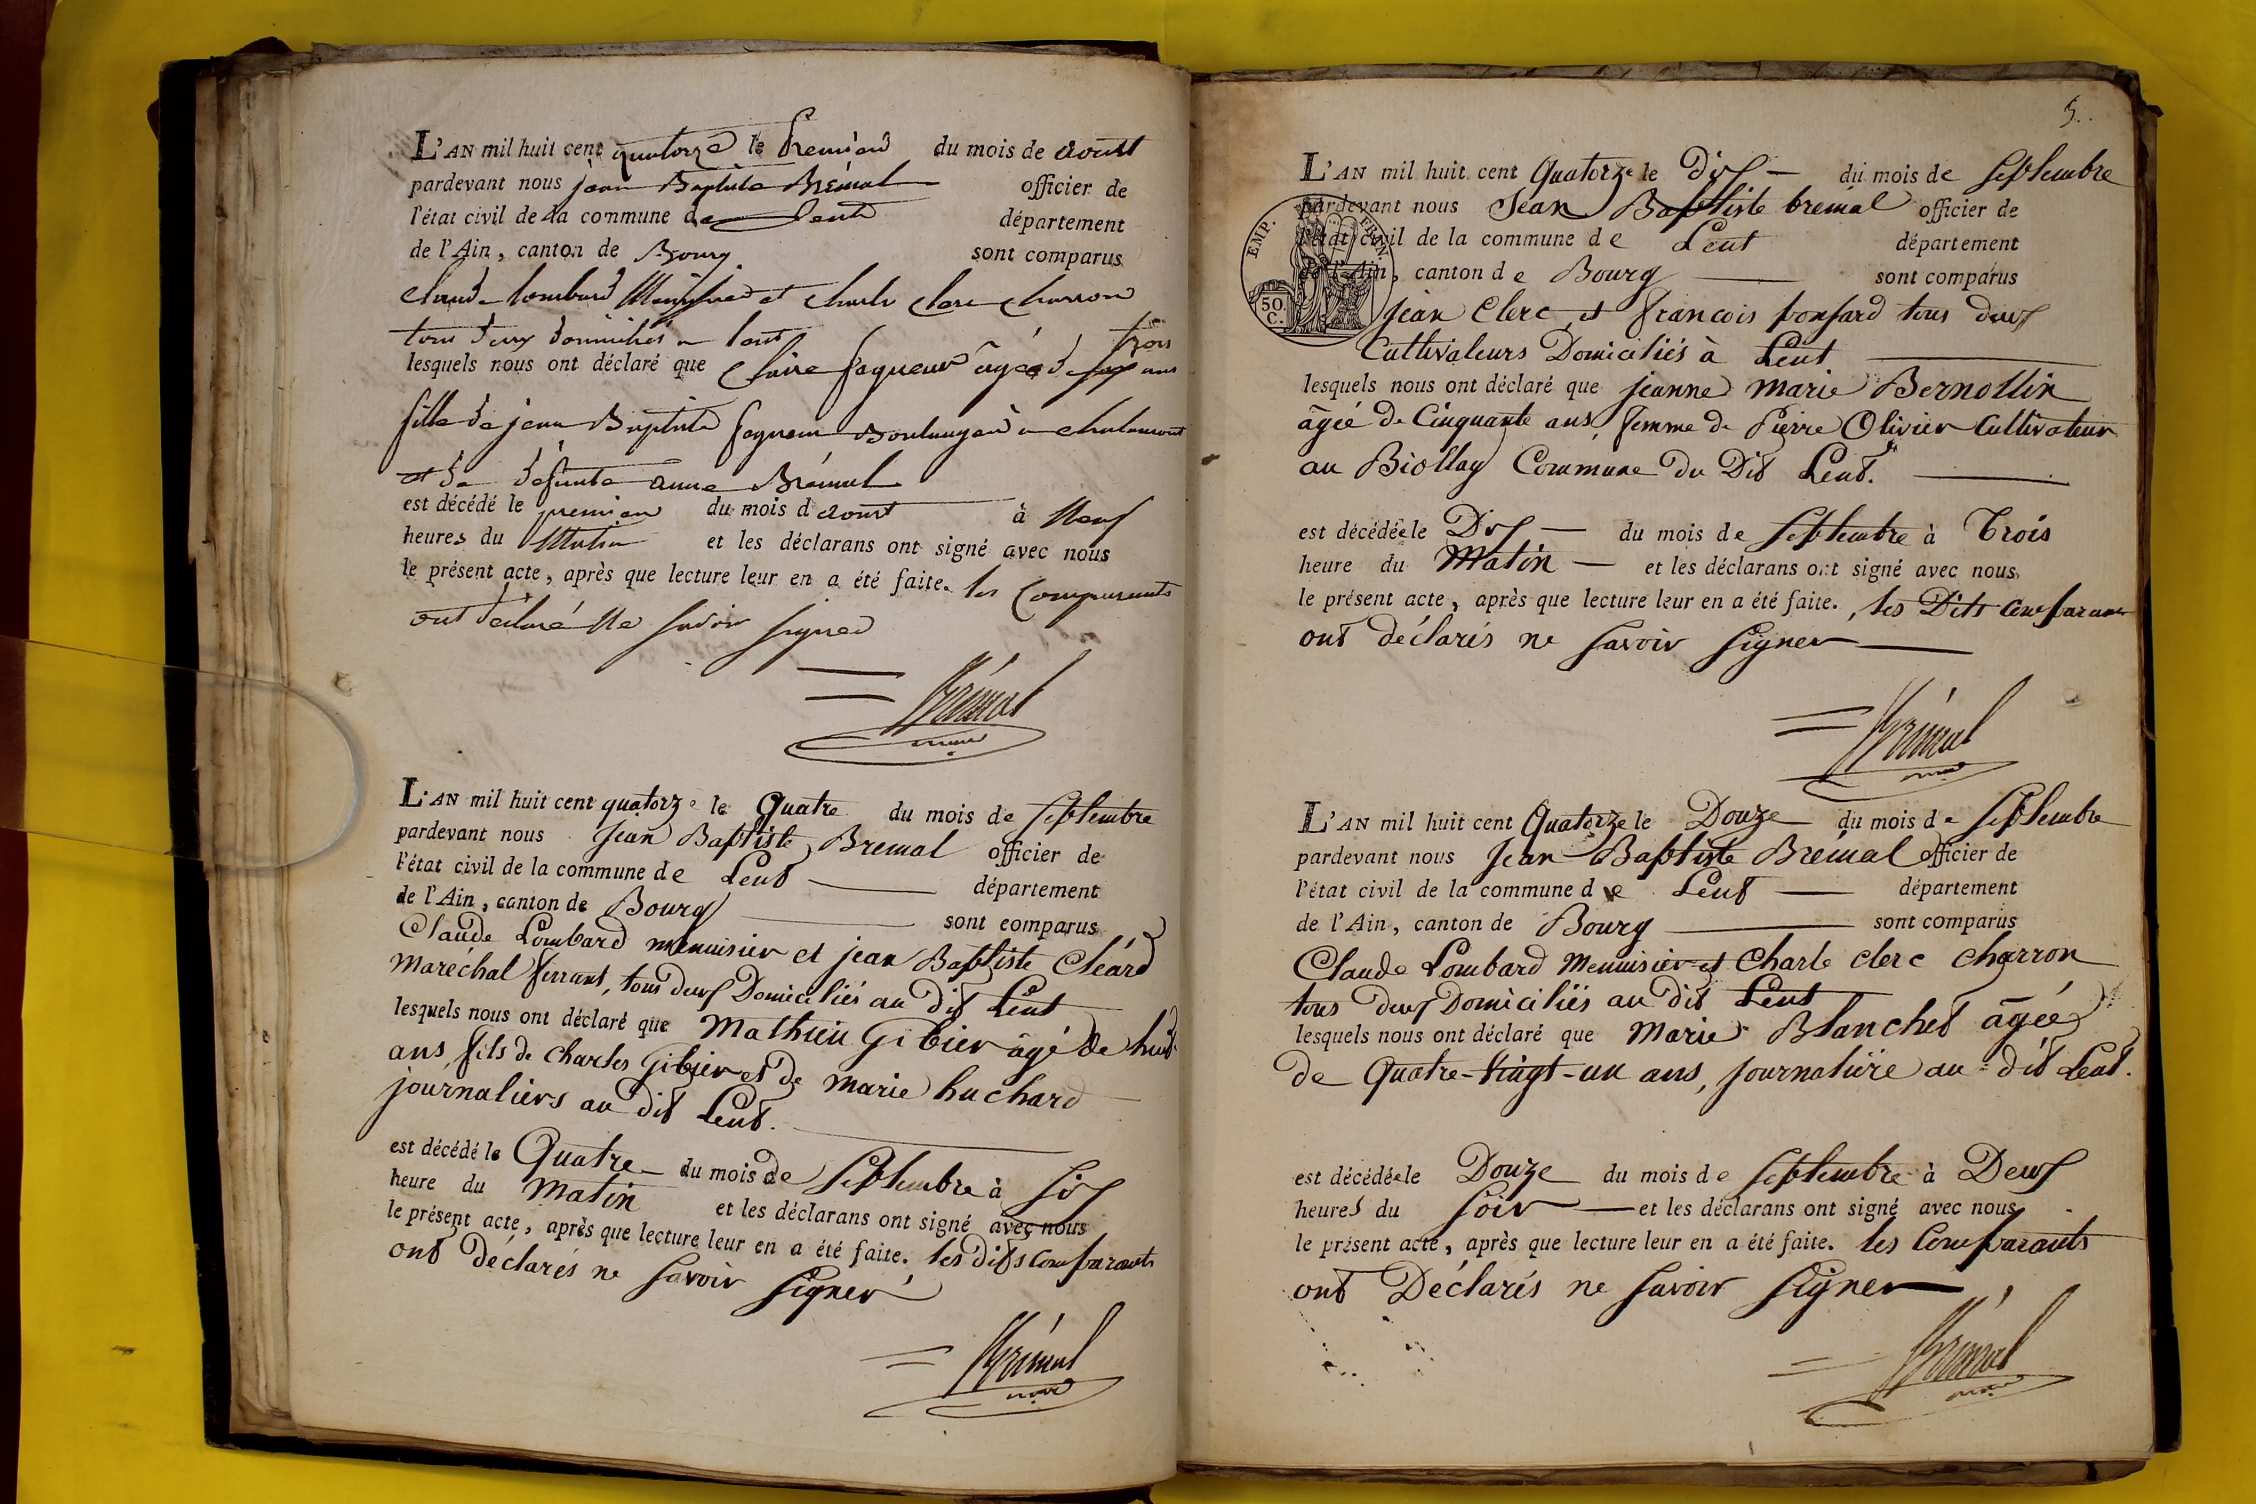 L'AN mil huit cent quatorze le Premier du mois de aoust
pardevant nous jean Baptiste Brémal officier de
l'état civil de la commune de Lent département
de l'Ain, canton de Bourg sont comparus
claude lombard Menuisier et charle clerc charron
tous deux domiciliés a lent
lesquels nous ont déclaré que claire fagueur âgée de trois ans
fille de jean Baptiste fagueur Boulanger a chalamont
et de défunte anne Brémal
est décédé le premier du mois d aoust à Neuf
heures du Matin et les déclarans ont signé avec nous
le présent acte, après que lecture leur en a été faite. les Comparants
ont déclaré Ne savoir signer
Brémal
maire
L'AN mil huit cent quatorze le Quatre du mois de septembre
pardevant nous Jean Baptiste Bremal officier de
l'état civil de la commune de Lent département
de l'Ain, canton de Bourg sont comparus
Claude Lombard menuisier et jean Baptiste Cléard
maréchal ferrant, tous deux Domiciliés au dit Lent
lesquels nous ont déclaré que Mathieu Gibier âgé de huit
ans, fils de Charles Gibier et de marie huchard
journaliers au dit Lent.
est décédé le Quatre du mois de septembre à six
heure du matin et les déclarans ont signé avec nous
le présent acte, après que lecture leur en a été faite. les dits comparants
ont déclarés ne savoir signer
Brémal
maire
5.
L'AN mil huit cent Quatorze le Dix du mois de septembre
pardevant nous Jean Baptiste bremal officier de
l'état civil de la commune de Lent département
de l'Ain, canton de Bourg sont comparus
EMP. FRAN.
50 C.
jean Clerc et françois ponsard tous deux
Cultivateurs Domiciliés à Lent
lesquels nous ont déclaré que jeanne marie Bernollin
âgée de Cinquante ans, femme de Pierre Olivier Cultivateur
au Biollay Commune du Dit Lent.
est décédée le Dix du mois de septembre à Trois
heure du Matin et les déclarans ont signé avec nous
le présent acte, après que lecture leur en a été faite., les Dits comparants
ont déclarés ne savoir signer
Brémal
maire
L'AN mil huit cent Quatorze le Douze du mois de septembre
pardevant nous Jean Baptiste Bremal officier de
l'état civil de la commune de Lent département
de l'Ain, canton de Bourg sont comparus
Claude Lombard menuisier et Charle clerc charron
tous deux Domiciliés au dit Lent
lesquels nous ont déclaré que Marie Blanchet âgée
de Quatre-Vingt-un ans, journalière au dit Lent.
est décédée le Douze du mois de septembre à Deux
heures du soir et les déclarans ont signé avec nous
le présent acte, après que lecture leur en a été faite. les Comparants
ont Déclarés ne savoir signer
Brémal
maire